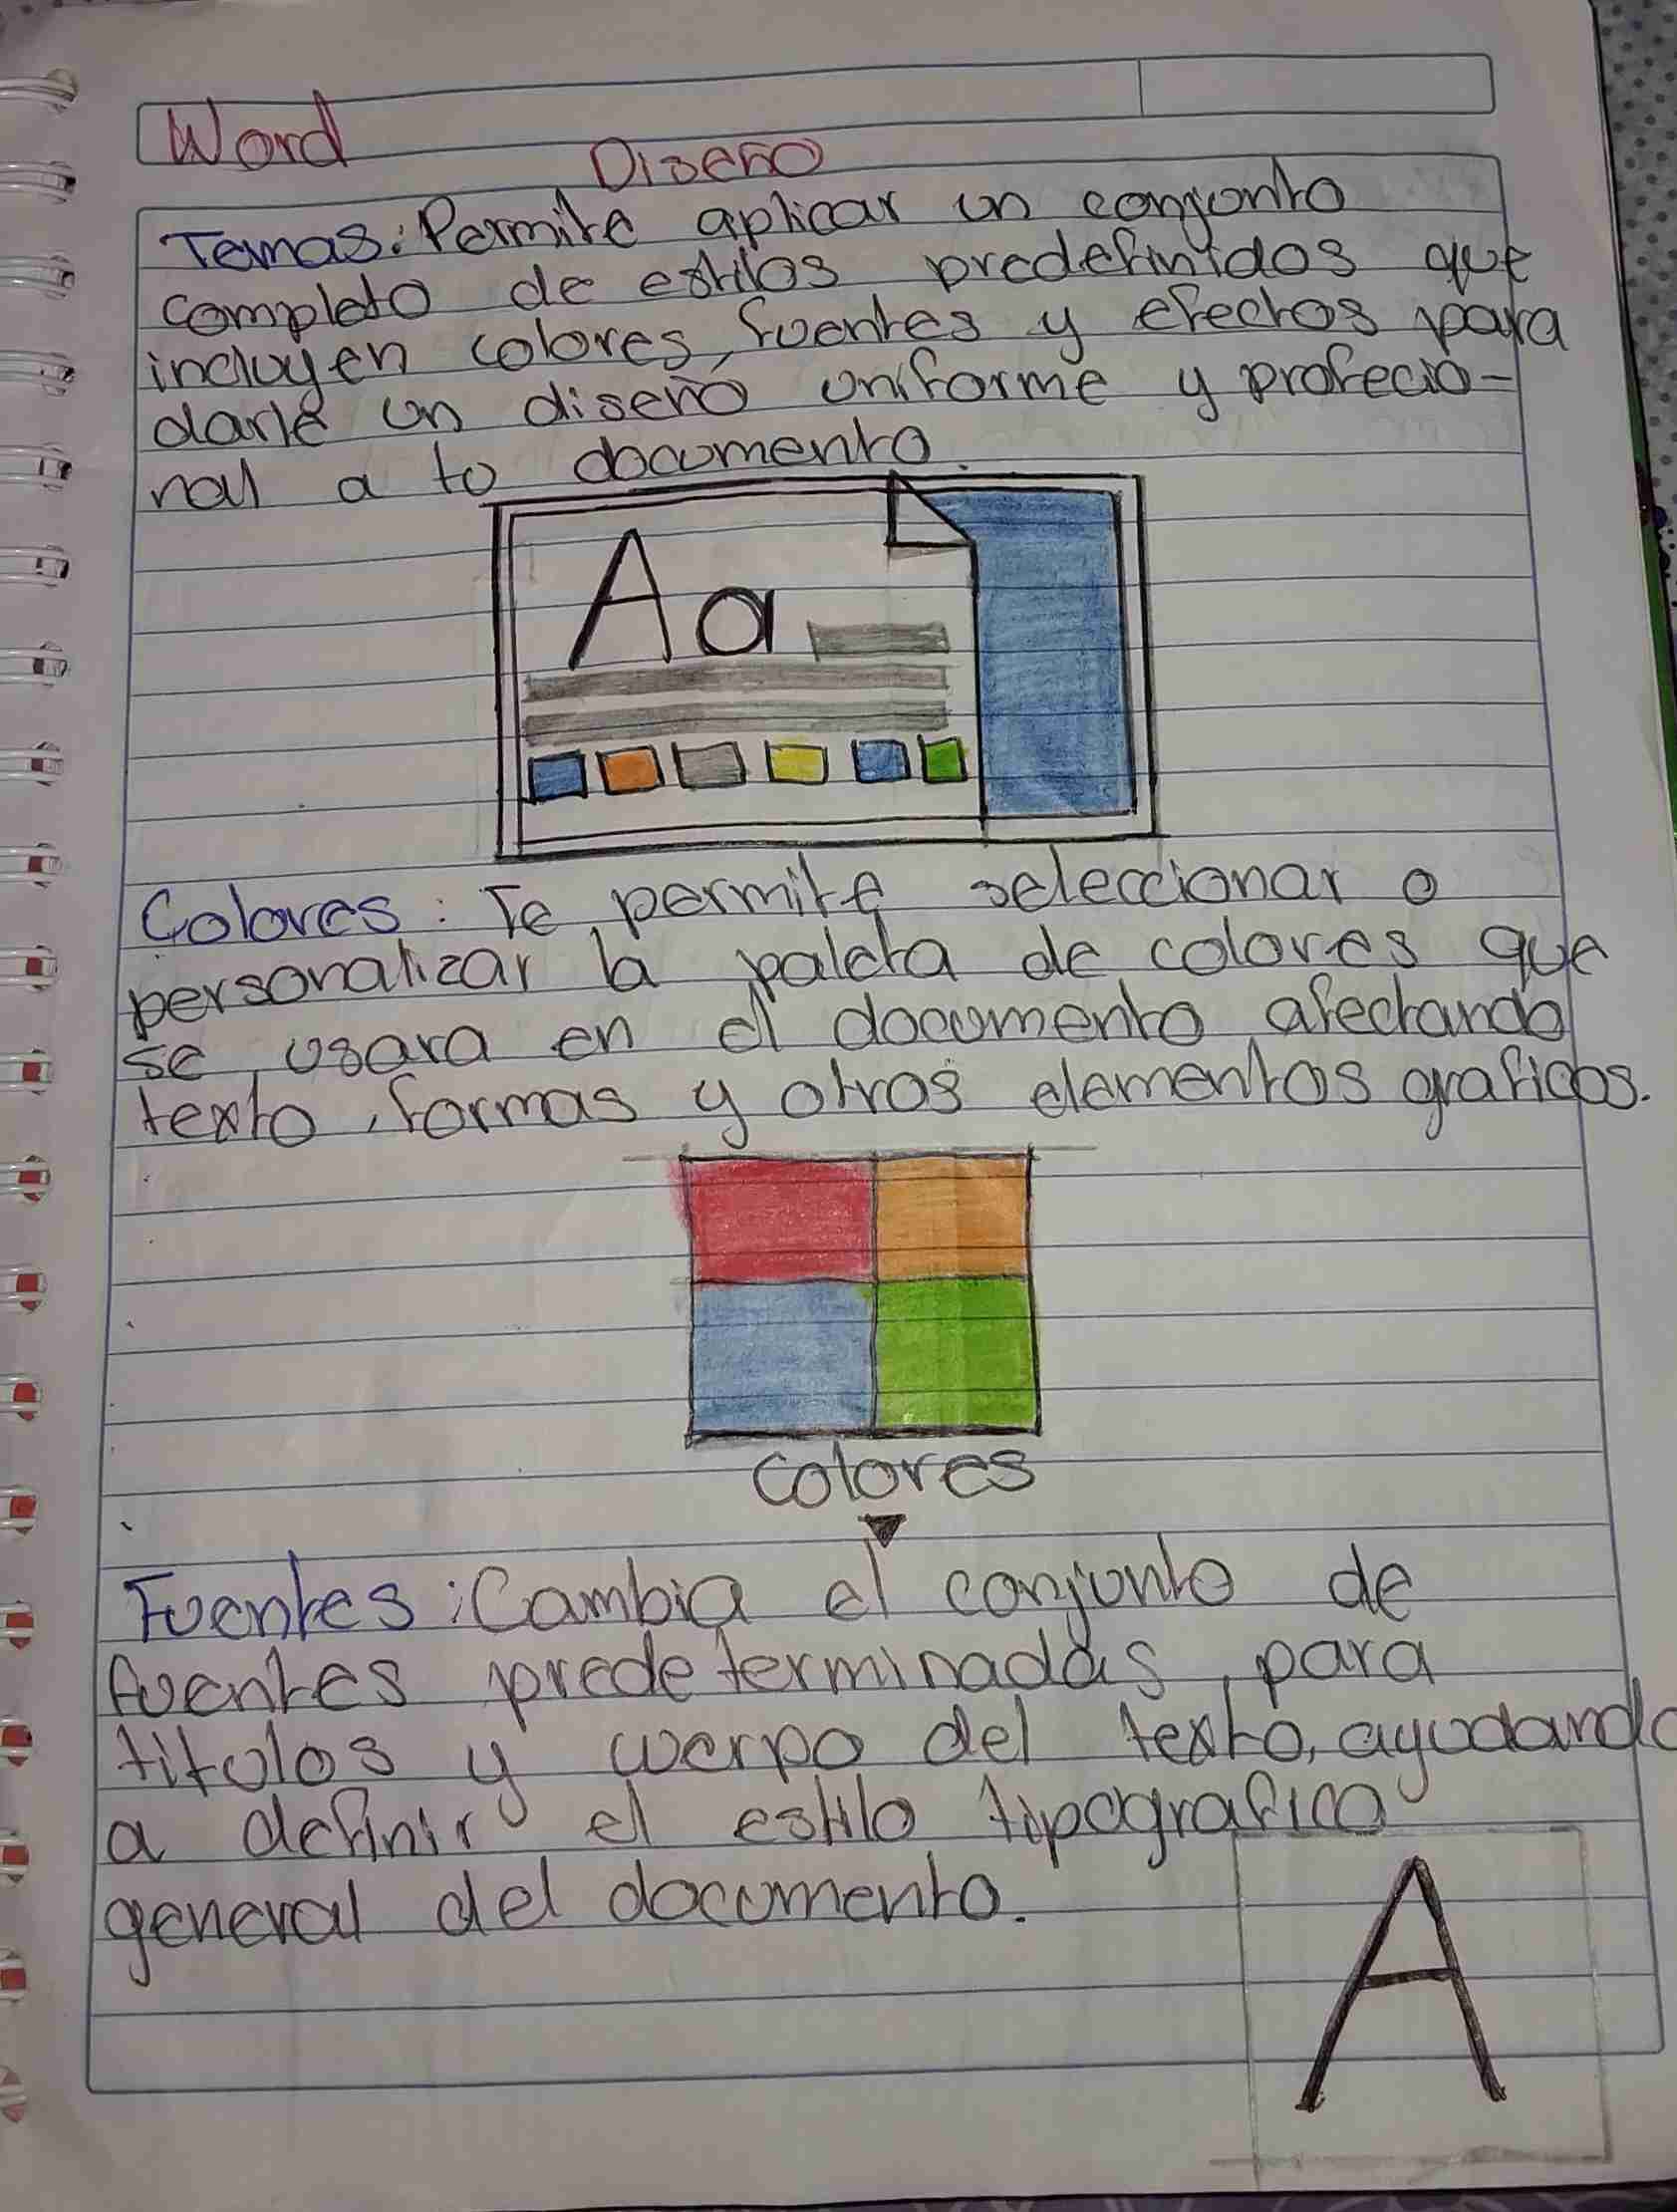 Word
Diseño
Temas: Permite aplicar un conjunto
completo de estilos predefinidos que
incluyen colores, fuentes y efectos para
darle un diseño uniforme y profecio-
nal a to documento.
Aa
Colores: Te permite seleccionar o
personalizar la paleta de colores que
se usara en el documento afectando
texto, formas y otros elementos graficos.
Colores
Fuentes: Cambia el conjunto de
fuentes predeterminadas, para
titulos y cuerpo del texto, ayudando
a definir el estilo tipografico
general del documento.
A